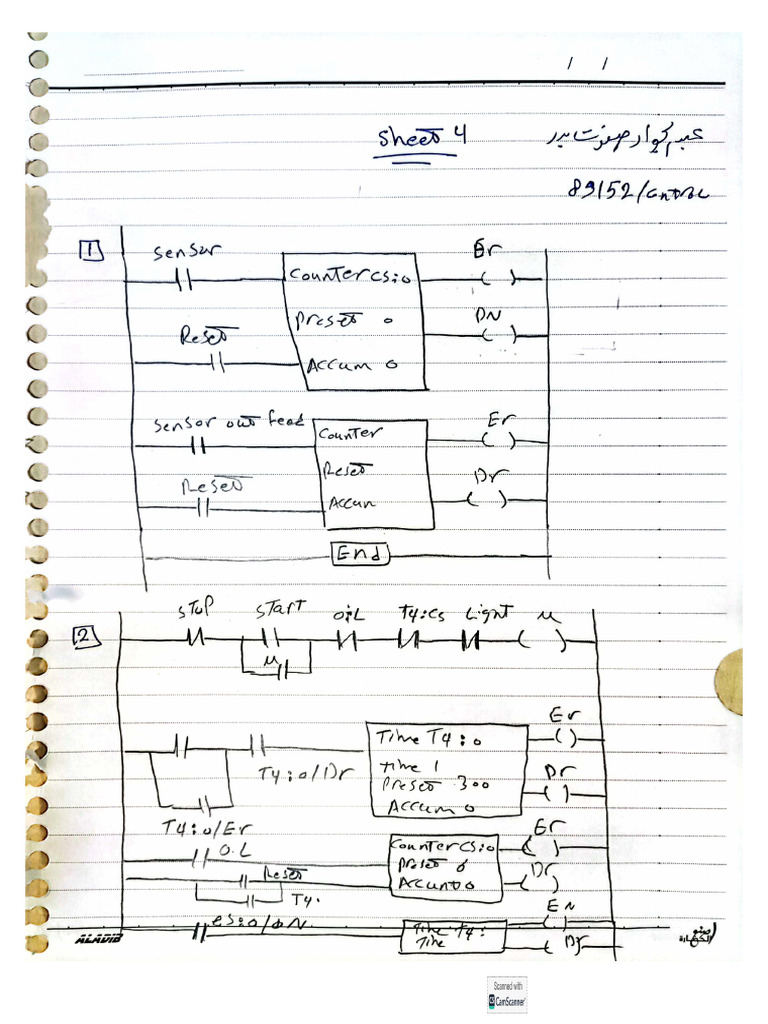 / /
Sheet 4
89152/Control
1
Sensor
Er
Counter CS:0
Preset 0
DN
Reset
Accum 0
Sensor out feed
Er
Counter
Reset
Reset
Dr
Accum
End
2
stop start oil T4:Cs Light M
M
Er
Time T4:0
time 1
Preset 300
Accum 0
Dr
T4:0/Dr
T4:0/Er
O.L
Er
Counter CS:0
Preset 6
Accum 0
Dr
Reset
T4.
CS:0/DN
EN
Time T4:
Time
Dr
ALAVID
Scanned with
CamScanner